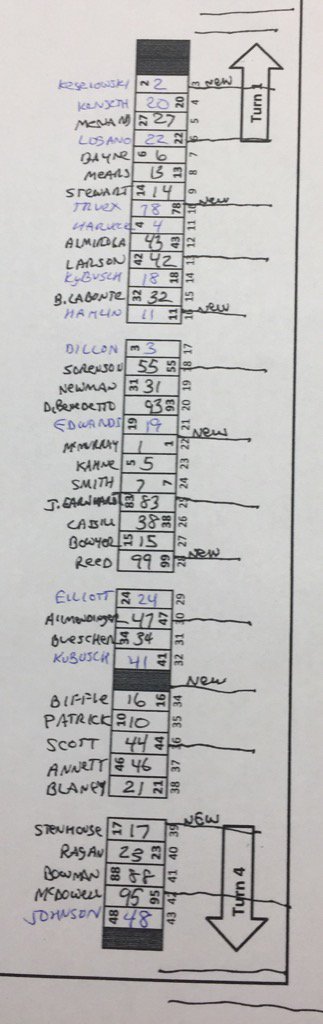 Turn 1
KESELOWSKI 2 2 3 NEW
KENSETH 20 20 4
27 27 5
LOGANO 22 22 6
DAYNE 6 6 7
MEARS 13 13 8
STEWART 14 14 9
TRUEX 78 78 10 NEW
HARVICK 4 4 11
ALMIROLA 43 43 12
LARSON 42 42 13
KyBUSCH 18 18 14
B. LABONTE 32 32 15
HAMLIN 11 11 16 NEW
DILLON 3 3 17
SORENSON 55 55 18
NEWMAN 31 31 19
DiBENEDETTO 93 93 20
EDWARDS 19 19 21
McMURRAY 1 1 22 NEW
KAHNE 5 5 23
SMITH 7 7 24
J. EARNHARDT 83 83 25
CASSILL 38 38 26
BOWYER 15 15 27
REED 99 99 28 NEW
ELLIOTT 24 24 29
ALLMENDINGER 47 47 30
BUESCHER 34 34 31
KUBUSCH 41 41 32
NEW
BIFFLE 16 16 34
PATRICK 10 10 35
SCOTT 44 44 36
ANNETT 46 46 37
BLANEY 21 21 38
STENHOUSE 17 17 39 NEW
RAGAN 23 23 40
BOWMAN 88 88 41
McDOWELL 95 95 42
JOHNSON 48 48 43
Turn 4